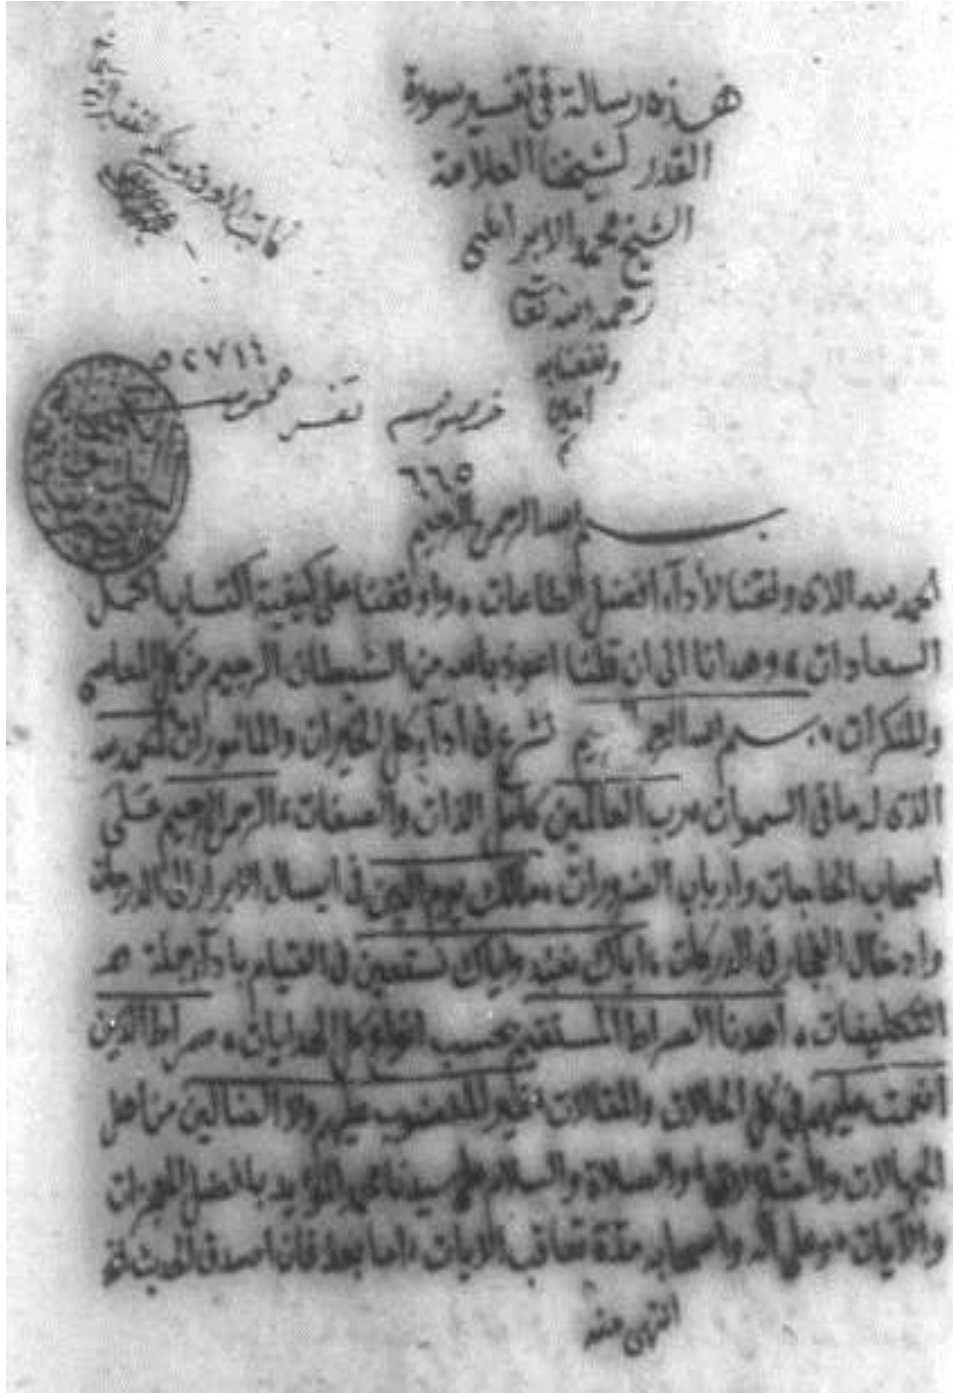 هذه رسالة في تفسير سورة
القدر لشيخنا العلامة
الشيخ محمد الابراهيمي
رحمه الله تعالى
ونفعنا به
امين
م
٥٢٧١٤
خصوصية تفسير
٦٦٥
بسم الله الرحمن الرحيم
الحمد لله الذى وفقنا لأدآء افضل الطاعات واوقفنا على كيفية اكتساب اكمل
السعادات وهدانا الى ان قلنا اعوذ بالله من الشيطان الرجيم من كل المعاصي
والمنكرات بسم الله الرحمن الرحيم نشرع في ادآء كل الخيرات والمامورات الحمد لله
الذى له ما في السموات رب العالمين كامل الذات والصفات الرحمن الرحيم على
اصحاب الحاجات وارباب الضرورات مالك يوم الدين في ايصال الابرار الى الدرجات
وادخال الفجار في الدركات اياك نعبد واياك نستعين في القيام بادآء جملة
التكليفات اهدنا الصراط المستقيم بحسب انواع كل الهدايات صراط الذين
انعمت عليهم في كل الحالات والمقالات غير المغضوب عليهم ولا الضالين من اهل
الجهالات والصلاة والسلام على سيدنا محمد المؤيد بافضل المعجزات
والآيات وعلى آله واصحابه مدة تعاقب الاوقات اما بعد فان اصدق الحديث
انتهى منه